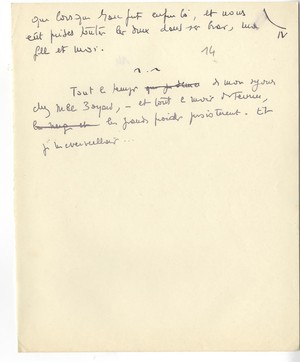 que lorsque Jean fut enfin là, et nous
eût prises toutes les deux dans ses bras, ma
fille et moi.
14
IV
Tout le temps que je de mon séjour
chez Mlle Bayard, – et tout le mois de février,
les grands froids persistèrent. Et
je m'émerveillais ...